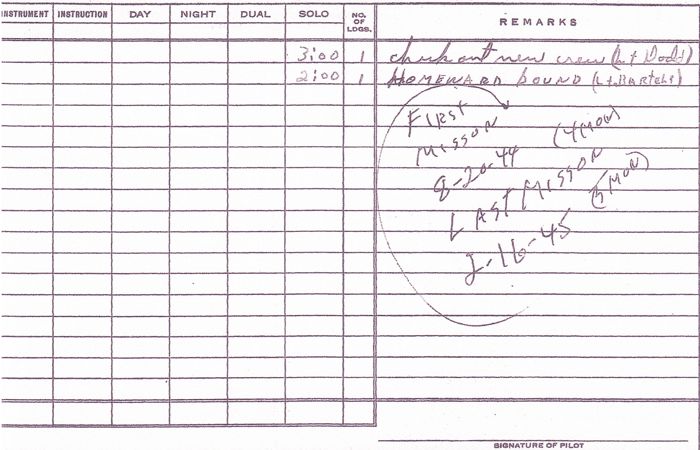 INSTRUMENT INSTRUCTION DAY NIGHT DUAL SOLO NO. OF LDGS. REMARKS
3:00 1 check out new crew (Lt Dodd)
2:00 1 HOMEWARD BOUND (Lt. Bartelt)
FIRST
MISSON (4 MON)
8-20-44
LAST MISSON (5 MON)
2-16-45
SIGNATURE OF PILOT